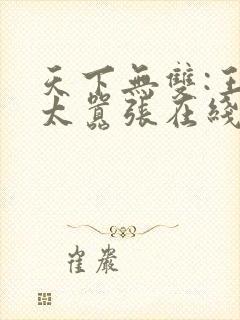 天下無雙:王
太囂張在綫
崔巖